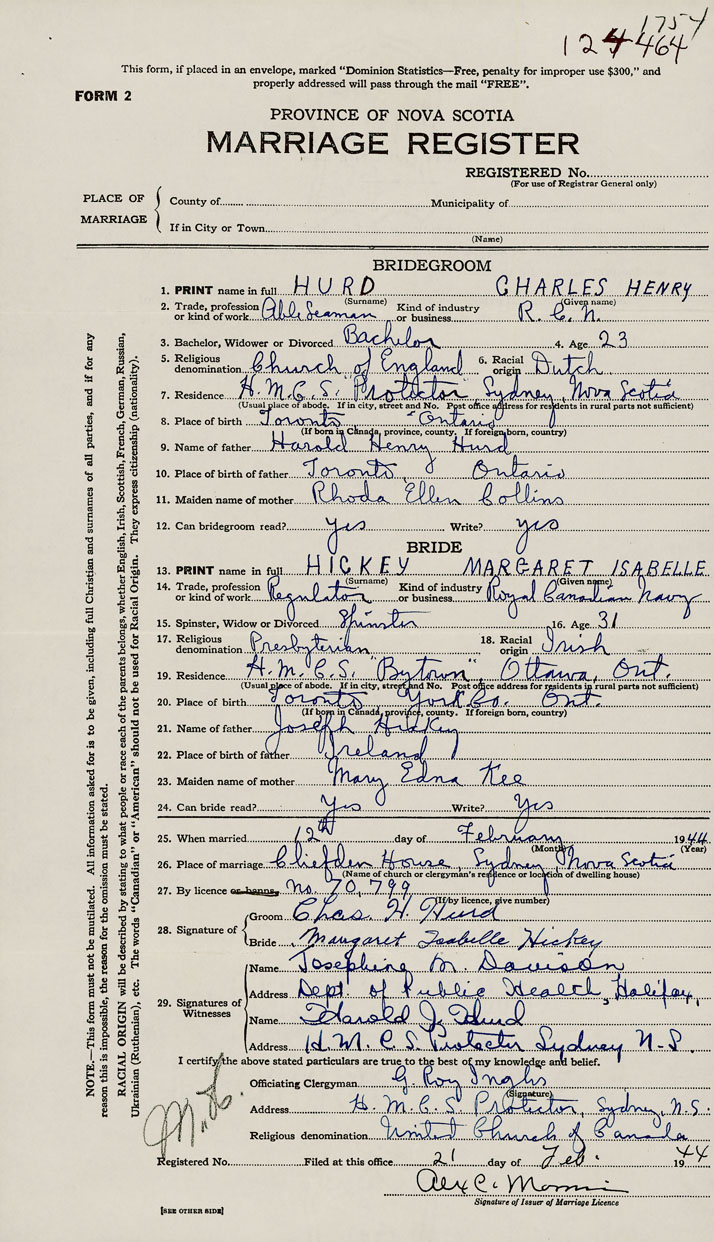 1754
124464
This form, if placed in an envelope, marked “Dominion Statistics—Free, penalty for improper use $300,” and
properly addressed will pass through the mail “FREE”.
FORM 2
PROVINCE OF NOVA SCOTIA
MARRIAGE REGISTER
REGISTERED No.
(For use of Registrar General only)
PLACE OF MARRIAGE
County of Municipality of
If in City or Town
(Name)
BRIDEGROOM
1. PRINT name in full HURD CHARLES HENRY
(Surname) (Given name)
2. Trade, profession or kind of work Able Seaman Kind of industry or business R.C.N.
3. Bachelor, Widower or Divorced Bachelor 4. Age 23
5. Religious denomination Church of England 6. Racial origin Dutch
7. Residence H.M.C.S. "Protector", Sydney, Nova Scotia
(Usual place of abode. If in city, street and No. Post office address for residents in rural parts not sufficient)
8. Place of birth Toronto Ontario
(If born in Canada, province, county. If foreign born, country)
9. Name of father Harold Henry Hurd
10. Place of birth of father Toronto, Ontario
11. Maiden name of mother Rhoda Ellen Collins
12. Can bridegroom read? yes Write? yes
BRIDE
13. PRINT name in full HICKEY MARGARET ISABELLE
(Surname) (Given name)
14. Trade, profession or kind of work Regulator Kind of industry or business Royal Canadian Navy
15. Spinster, Widow or Divorced Spinster 16. Age 31
17. Religious denomination Presbyterian 18. Racial origin Irish
19. Residence H.M.C.S. "Bytown", Ottawa, Ont.
(Usual place of abode. If in city, street and No. Post office address for residents in rural parts not sufficient)
20. Place of birth Toronto York Co. Ont.
(If born in Canada, province, county. If foreign born, country)
21. Name of father Joseph Hickey
22. Place of birth of father Ireland
23. Maiden name of mother Mary Edna Kee
24. Can bride read? Yes Write? Yes
25. When married 12th day of February 1944
(Month) (Year)
26. Place of marriage Cliefden House, Sydney, Nova Scotia
(Name of church or clergyman's residence or location of dwelling house)
27. By licence or banns No. 70,799
(If by licence, give number)
28. Signature of
Groom Chas. H. Hurd
Bride Margaret Isabelle Hickey
29. Signatures of Witnesses
Name Josephine M. Davison
Address Dept of Public Health, Halifax,
Name Harold J. Hurd
Address H.M.C.S Protector Sydney N-S.
I certify the above stated particulars are true to the best of my knowledge and belief.
Officiating Clergyman G. Roy Inglis
(Signature)
Address H.M.C.S. Protector, Sydney, N.S.
Religious denomination United Church of Canada
Registered No. Filed at this office 21 day of Feb. 1944
Signature of Issuer of Marriage Licence
[SEE OTHER SIDE]
NOTE.—This form must not be mutilated. All information asked for is to be given, including full Christian and surnames of all parties, and if for any
reason this is impossible, the reason for the omission must be stated.
RACIAL ORIGIN will be described by stating to what people or race each of the parents belongs, whether English, Irish, Scottish, French, German, Russian,
Ukrainian (Ruthenian), etc. The words “Canadian” or “American” should not be used for Racial Origin. They express citizenship (nationality).